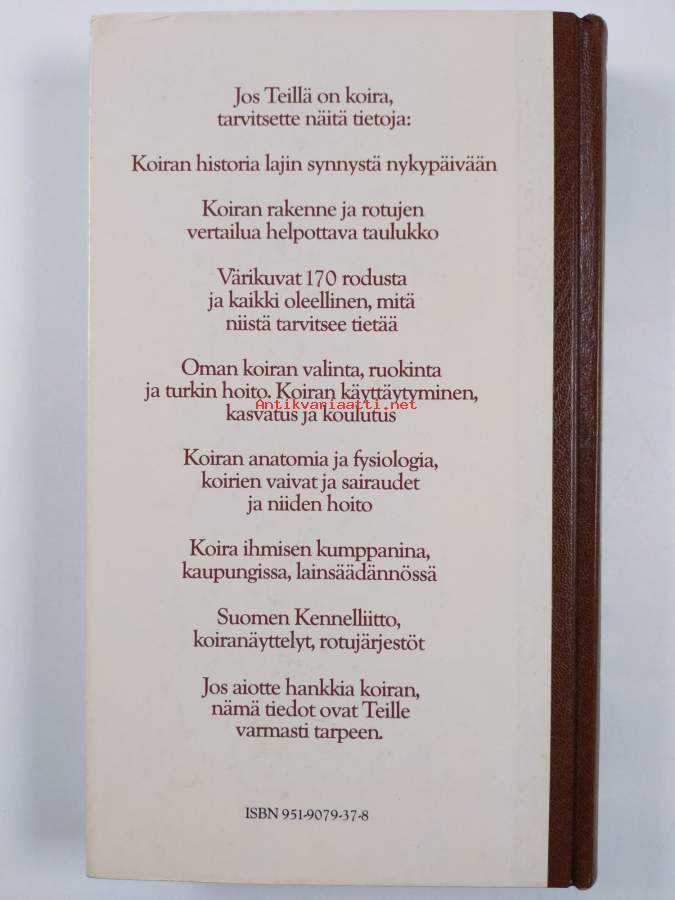 Jos Teillä on koira,
tarvitsette näitä tietoja:
Koiran historia lajin synnystä nykypäivään
Koiran rakenne ja rotujen
vertailua helpottava taulukko
Värikuvat 170 rodusta
ja kaikki oleellinen, mitä
niistä tarvitsee tietää
Oman koiran valinta, ruokinta
ja turkin hoito. Koiran käyttäytyminen,
Antikvariaatti.net
kasvatus ja koulutus
Koiran anatomia ja fysiologia,
koirien vaivat ja sairaudet
ja niiden hoito
Koira ihmisen kumppanina,
kaupungissa, lainsäädännössä
Suomen Kennelliitto,
koiranäyttelyt, rotujärjestöt
Jos aiotte hankkia koiran,
nämä tiedot ovat Teille
varmasti tarpeen.
ISBN 951-9079-37-8